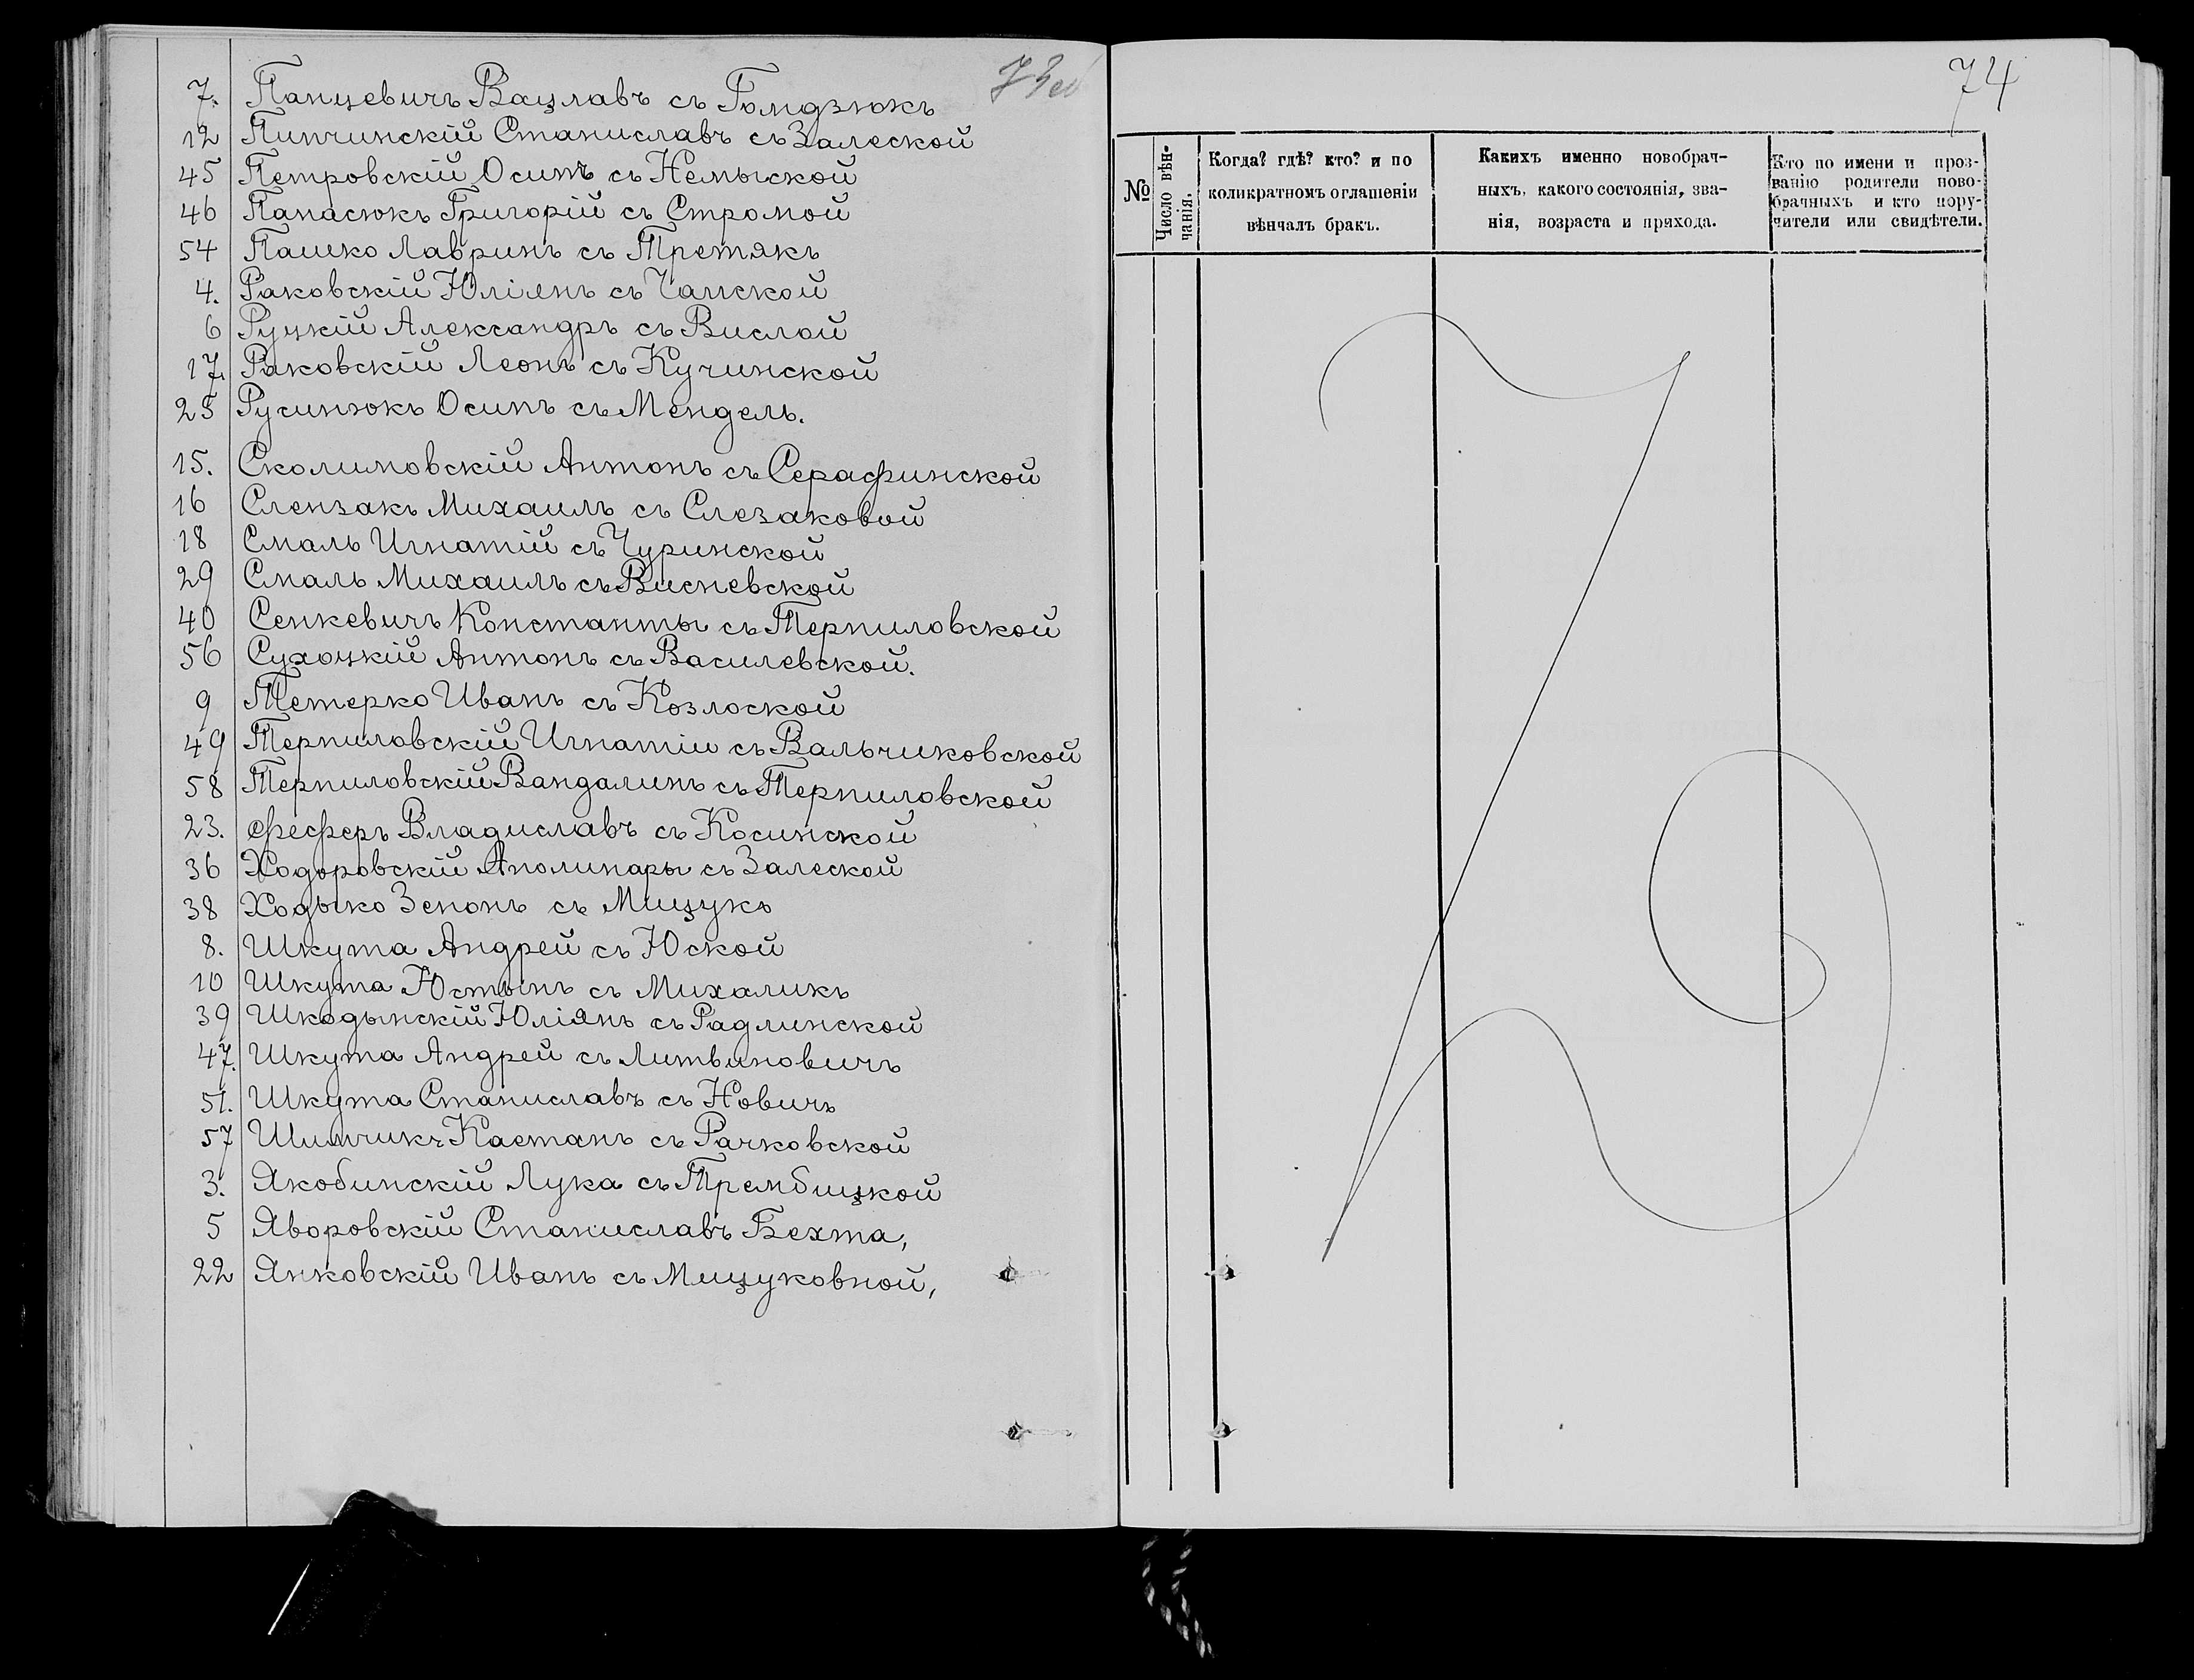 73 об
7. Панцевичъ Вацлавъ съ Гомдзюкъ
12 Пипчинскій Станиславъ съ Залеской
45 Петровскій Осипъ съ Немыской
46 Панасюкъ Григорій съ Стромой
54 Пашко Лавринъ съ Третякъ
4. Раковскій Юліянъ съ Чапской
6 Руцкій Александръ съ Вислой
17. Раковскій Леонъ съ Кучинской
25 Русинюкъ Осипъ съ Мендель.
15. Сколимовскій Антонъ съ Серафинской
16 Слензакъ Михаилъ съ Слезаковой
18 Смаль Игнатій съ Чуринской
29 Смаль Михаилъ съ Висневской
40 Сенкевичъ Константы съ Терпиловской
56 Сухоцкій Антонъ съ Василевской.
9 Тетерко Иванъ съ Козлоской
49 Терпиловскій Игнатіи съ Вальчиковской
58 Терпиловскій Вандалинъ съ Терпиловской
23. Фефръ Владиславъ съ Косинской
36 Ходоровскій Аполинары съ Залеской
38 Ходыко Зенонъ съ Мицукъ
8. Шкута Андрей съ Юской
10 Шкута Юстынъ съ Михаликъ
39 Шкодынскій Юліянъ съ Радлинской
47. Шкута Андрей съ Литвиновичъ
51. Шкута Станиславъ съ Новичъ
57 Шимчикъ Каетанъ съ Рачковской
3. Якобинскій Лука съ Трембицкой
5 Яворовскій Станиславъ Бехта,
22 Янковскій Иванъ съ Мицуковной,
74
№
Число вѣн-
чанія.
Когда? гдѣ? кто? и по
коликратномъ оглашеніи
вѣнчалъ бракъ.
Какихъ именно новобрач-
ныхъ, какого состоянія, зва-
нія, возраста и прихода.
Кто по имени и проз-
ванію родители ново-
брачныхъ и кто пору-
чители или свидѣтели.